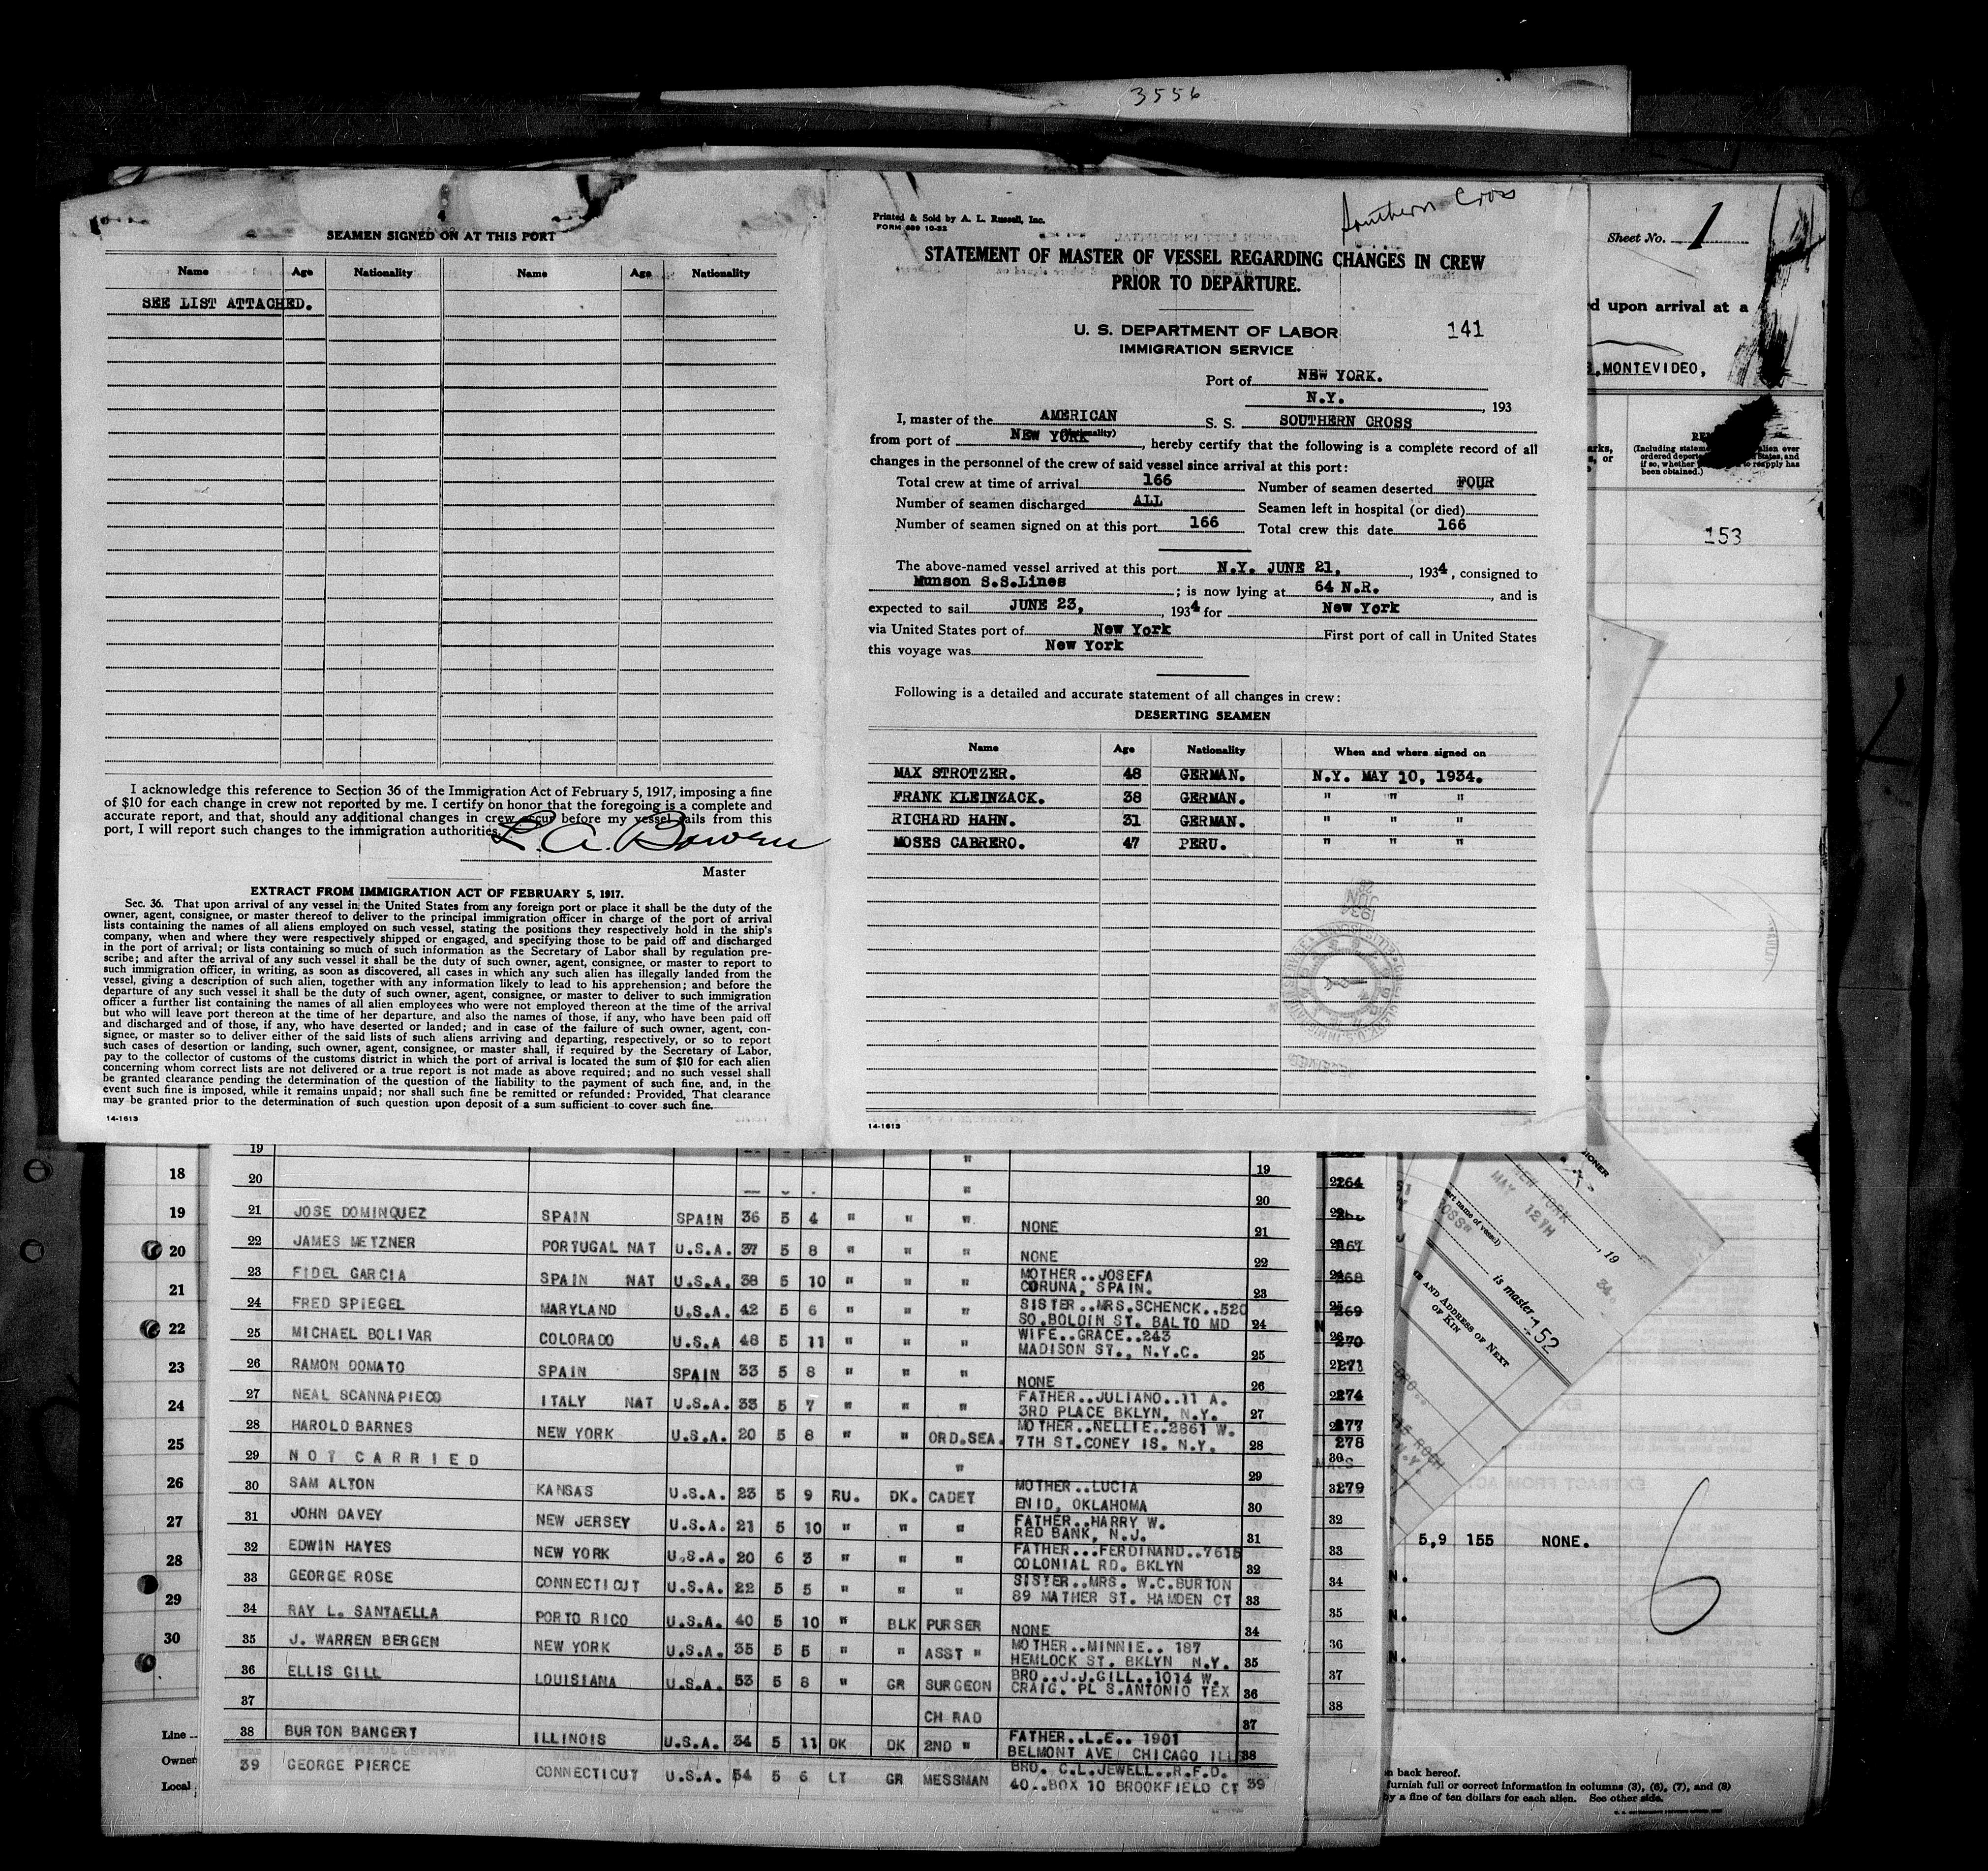 3556
4
SEAMEN SIGNED ON AT THIS PORT
Name Age Nationality Name Age Nationality
SEE LIST ATTACHED.
I acknowledge this reference to Section 36 of the Immigration Act of February 5, 1917, imposing a fine
of $10 for each change in crew not reported by me. I certify on honor that the foregoing is a complete and
accurate report, and that, should any additional changes in crew occur before my vessel sails from this
port, I will report such changes to the immigration authorities.
L. A. Bowen
Master
EXTRACT FROM IMMIGRATION ACT OF FEBRUARY 5, 1917.
Sec. 36. That upon arrival of any vessel in the United States from any foreign port or place it shall be the duty of the
owner, agent, consignee, or master thereof to deliver to the principal immigration officer in charge of the port of arrival
lists containing the names of all aliens employed on such vessel, stating the positions they respectively hold in the ship's
company, when and where they were respectively shipped or engaged, and specifying those to be paid off and discharged
in the port of arrival; or lists containing so much of such information as the Secretary of Labor shall by regulation pre-
scribe; and after the arrival of any such vessel it shall be the duty of such owner, agent, consignee, or master to report to
such immigration officer, in writing, as soon as discovered, all cases in which any such alien has illegally landed from the
vessel, giving a description of such alien, together with any information likely to lead to his apprehension; and before the
departure of any such vessel it shall be the duty of such owner, agent, consignee, or master to deliver to such immigration
officer a further list containing the names of all alien employees who were not employed thereon at the time of the arrival
but who will leave port thereon at the time of her departure, and also the names of those, if any, who have been paid off
and discharged and of those, if any, who have deserted or landed; and in case of the failure of such owner, agent, con-
signee, or master so to deliver either of the said lists of such aliens arriving and departing, respectively, or so to report
such cases of desertion or landing, such owner, agent, consignee, or master shall, if required by the Secretary of Labor,
pay to the collector of customs of the customs district in which the port of arrival is located the sum of $10 for each alien
concerning whom correct lists are not delivered or a true report is not made as above required; and no such vessel shall
be granted clearance pending the determination of the question of the liability to the payment of such fine, and, in the
event such fine is imposed, while it remains unpaid; nor shall such fine be remitted or refunded: Provided, That clearance
may be granted prior to the determination of such question upon deposit of a sum sufficient to cover such fine.
14-1613
Southern Cross
Printed & Sold by A. L. Russell, Inc.
FORM 689 10-32
STATEMENT OF MASTER OF VESSEL REGARDING CHANGES IN CREW
PRIOR TO DEPARTURE.
U. S. DEPARTMENT OF LABOR 141
IMMIGRATION SERVICE
Port of NEW YORK.
N.Y. , 193
I, master of the AMERICAN S. S. SOUTHERN CROSS
(Nationality)
from port of NEW YORK, hereby certify that the following is a complete record of all
changes in the personnel of the crew of said vessel since arrival at this port:
Total crew at time of arrival 166 Number of seamen deserted FOUR
Number of seamen discharged ALL Seamen left in hospital (or died)
Number of seamen signed on at this port 166 Total crew this date 166
The above-named vessel arrived at this port N.Y. JUNE 21, , 1934, consigned to
Munson S.S.Lines ; is now lying at 64 N.R. , and is
expected to sail JUNE 23, , 1934 for New York
via United States port of New York First port of call in United States
this voyage was New York
Following is a detailed and accurate statement of all changes in crew:
DESERTING SEAMEN
Name Age Nationality When and where signed on
MAX STROTZER. 48 GERMAN. N.Y. MAY 10, 1934.
FRANK KLEINZACK. 38 GERMAN. " " "
RICHARD HAHN. 31 GERMAN. " " "
MOSES CABRERO. 47 PERU. " " "
14-1613
Sheet No. 1
d upon arrival at a
MONTEVIDEO,
(Including
been obtained.)
153
19 " 19
20 " 20
21 JOSE DOMINQUEZ SPAIN SPAIN 36 5 4 " " " NONE 21
22 JAMES METZNER PORTUGAL NAT U.S.A. 37 5 8 " " " NONE 22
23 FIDEL GARCIA SPAIN NAT U.S.A. 38 5 10 " " " MOTHER..JOSEFA
CORUNA, SPAIN. 23
24 FRED SPIEGEL MARYLAND U.S.A. 42 5 6 " " " SISTER..MRS.SCHENCK..520
SO.BOLDIN ST. BALTO MD 24
25 MICHAEL BOLIVAR COLORADO U.S.A 48 5 11 " " " WIFE..GRACE..243
MADISON ST., N.Y.C. 25
26 RAMON DOMATO SPAIN SPAIN 33 5 8 " " " NONE 26
27 NEAL SCANNAPIECO ITALY NAT U.S.A. 33 5 7 " " " FATHER..JULIANO..11 A.
3RD PLACE BKLYN, N.Y. 27
28 HAROLD BARNES NEW YORK U.S.A. 20 5 8 " " ORD.SEA. MOTHER..NELLIE..2861 W.
7TH ST.CONEY IS. N.Y. 28
29 NOT CARRIED " 29
30 SAM ALTON KANSAS U.S.A. 23 5 9 RU. DK. CADET MOTHER..LUCIA
ENID, OKLAHOMA 30
31 JOHN DAVEY NEW JERSEY U.S.A. 21 5 10 " " " FATHER..HARRY W.
RED BANK, N.J. 31
32 EDWIN HAYES NEW YORK U.S.A. 20 6 3 " " " FATHER...FERDINAND..7615
COLONIAL RD. BKLYN 32
33 GEORGE ROSE CONNECTICUT U.S.A. 22 5 5 " " " SISTER..MRS. W.C.BURTON
89 MATHER ST. HAMDEN CT 33
34 RAY L. SANTAELLA PORTO RICO U.S.A. 40 5 10 " BLK PURSER NONE 34
35 J. WARREN BERGEN NEW YORK U.S.A. 35 5 5 " " ASST " MOTHER..MINNIE.. 187
HEMLOCK ST. BKLYN N.Y. 35
36 ELLIS GILL LOUISIANA U.S.A. 53 5 8 " GR SURGEON BRO..J.J.GILL..1014 W.
CRAIG. PL S.ANTONIO TEX 36
37 CH RAD 37
38 BURTON BANGERT ILLINOIS U.S.A. 34 5 11 DK DK 2ND " FATHER..L.E.. 1901
BELMONT AVE CHICAGO ILL 38
39 GEORGE PIERCE CONNECTICUT U.S.A. 54 5 6 LT GR MESSMAN BRO. C.L.JEWELL..R.F.D.
40..BOX 10 BROOKFIELD CT 39
18
19
20
21
22
23
24
25
26
27
28
29
30
Line
Owner
Local
264
267
268
269
270
271
274
277
278
279
32
33
34
35
36
37
38
NEW YORK
MAY 12TH , 19 34
name of vessel)
is master
152
AND ADDRESS OF NEXT
OF KIN
5,9 155 NONE.
6
n back hereof.
furnish full or correct information in columns (3), (6), (7), and (8)
by a fine of ten dollars for each alien. See other side.